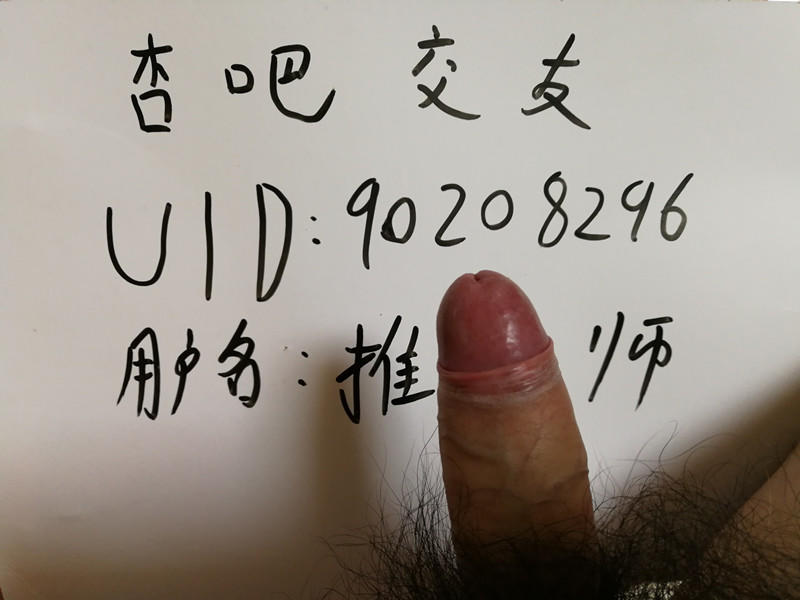 杏吧 交友
UID:90208296
用户名:推 师